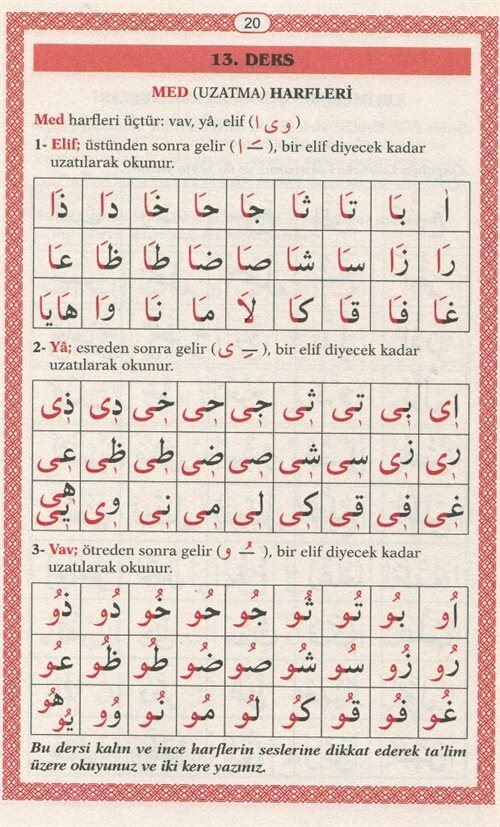 20
13. DERS
MED (UZATMA) HARFLERİ
Med harfleri üçtür: vav, yâ, elif ( و ى ا )
1- Elif; üstünden sonra gelir ( ـَ ا ), bir elif diyecek kadar
uzatılarak okunur.
اٰ بَا تَا ثَا جَا حَا خَا دَا ذَا
رَا زَا سَا شَا صَا ضَا طَا ظَا عَا
غَا فَا قَا كَا لَا مَا نَا وَا هَايَا
2- Yâ; esreden sonra gelir ( ـِ ى ), bir elif diyecek kadar
uzatılarak okunur.
اِى بِى تِى ثِى جِى حِى خِى دِى ذِى
رِى زِى سِى شِى صِى ضِى طِى ظِى عِى
غِى فِى قِى كِى لِى مِى نِى وِى هِى يِى
3- Vav; ötreden sonra gelir ( ـُ و ), bir elif diyecek kadar
uzatılarak okunur.
اُو بُو تُو ثُو جُو حُو خُو دُو ذُو
رُو زُو سُو شُو صُو ضُو طُو ظُو عُو
غُو فُو قُو كُو لُو مُو نُو وُو هُو يُو
Bu dersi kalın ve ince harflerin seslerine dikkat ederek ta’lim
üzere okuyunuz ve iki kere yazınız.